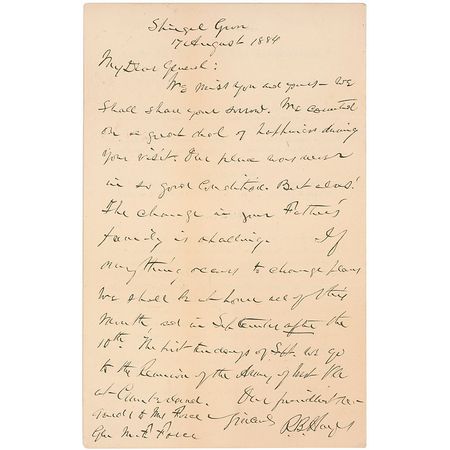 Spiegel Grove
17 August 1884
My Dear General:
We miss you and yours - We
shall share your sorrow. We counted
on a great deal of happiness during
your visit. Our place was never
in so good condition. But alas!
The change in your Father's
family is If
anything occurs to change plans
We shall be at home all of this
Month, and in September after the
10th. The first ten days of Sept. we go
to the Reunion of the Army of West Va
at Cumberland. Our kindest re-
gards to Mrs Force Sincerely
Gen M. F. Force R. B. Hayes